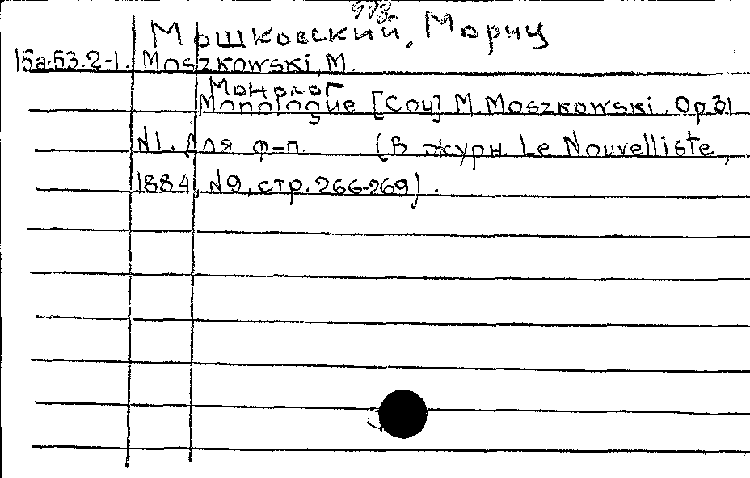 Мошковский, Мориц
15а.53.2-1. Moszkowski, M.
Монолог
Monologue [Соч] M. Moszkowski. Op. 31
N1. Для ф-п. (В журн Le Nouvelliste,
1884, N9, стр. 266-269).